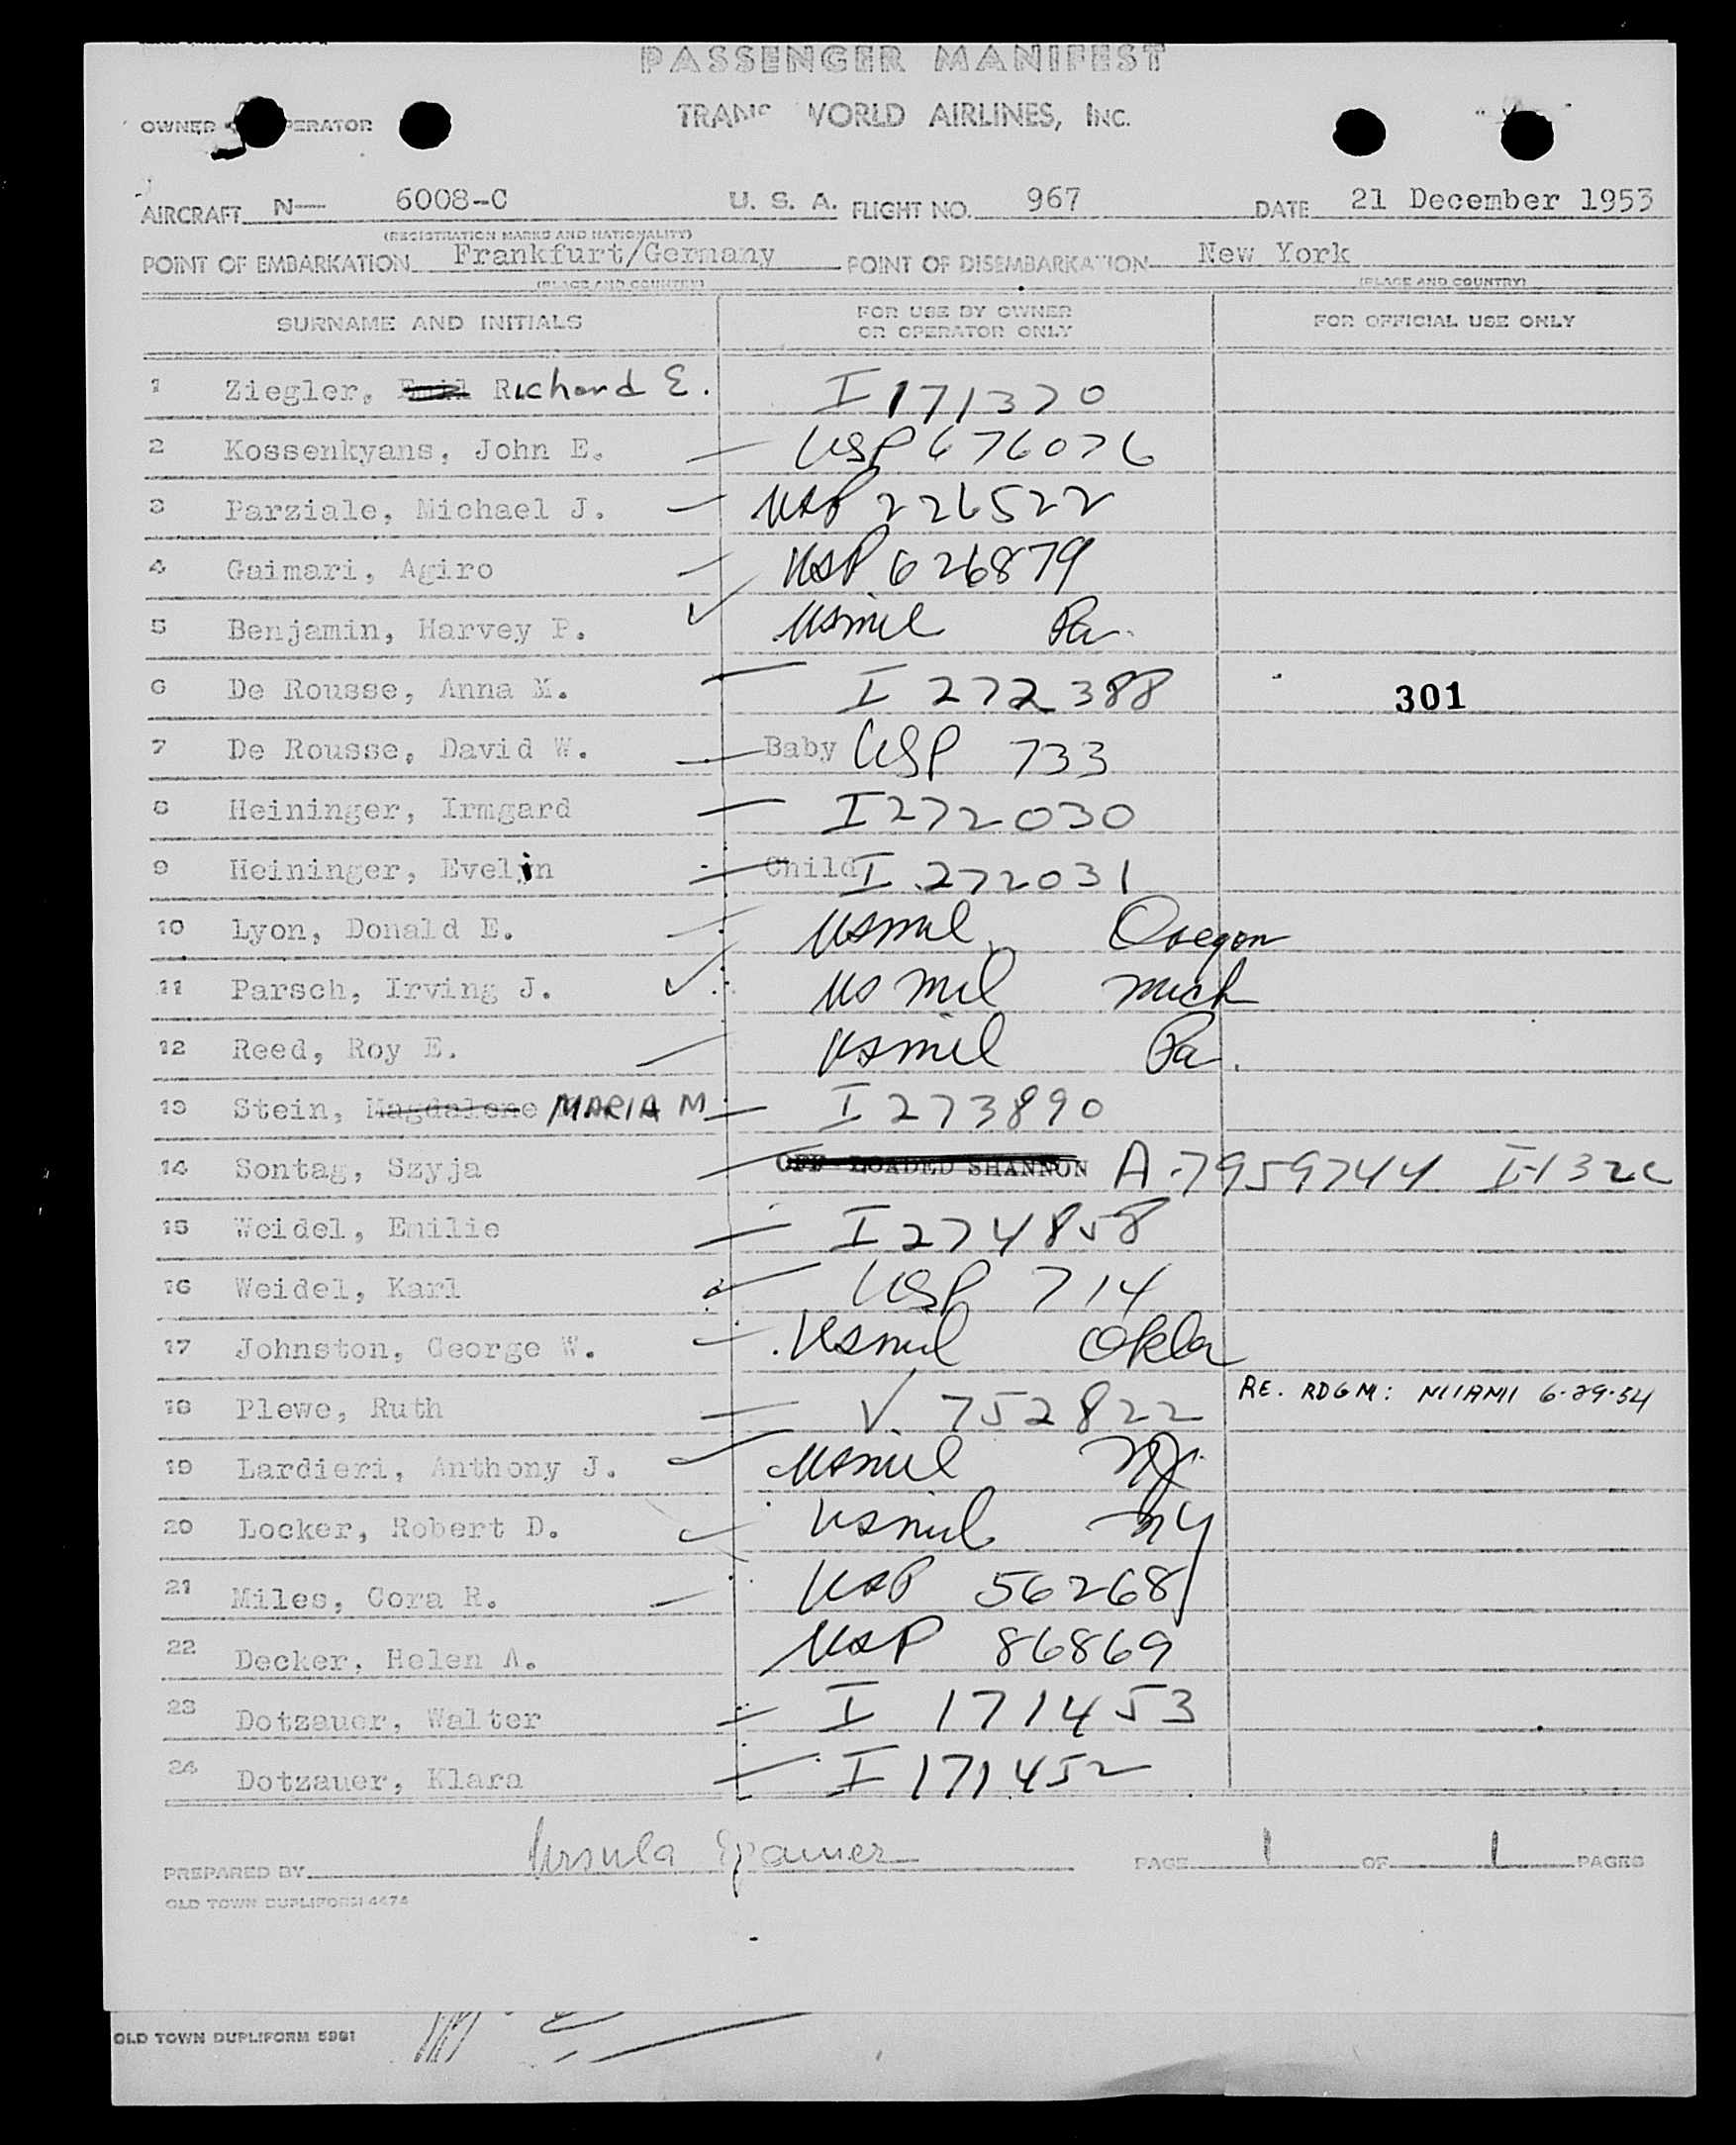 PASSENGER MANIFEST
TRANS WORLD AIRLINES, INC.
OWNER OPERATOR
AIRCRAFT N— 6008-C U. S. A. FLIGHT NO. 967 DATE 21 December 1953
(REGISTRATION MARKS AND NATIONALITY)
POINT OF EMBARKATION Frankfurt/Germany POINT OF DISEMBARKATION New York
(PLACE AND COUNTRY) (PLACE AND COUNTRY)
SURNAME AND INITIALS FOR USE BY OWNER OR OPERATOR ONLY FOR OFFICIAL USE ONLY
1 Ziegler, Emil Richard E. I 171370
2 Kossenkyans, John E. USP 676076
3 Parziale, Michael J. USP 226522
4 Gaimari, Agiro USP 626879
5 Benjamin, Harvey P. usmil Pa.
6 De Rousse, Anna M. I 272388 301
7 De Rousse, David W. Baby USP 733
8 Heininger, Irmgard I 272030
9 Heininger, Evelin Child I 272031
10 Lyon, Donald E. usmil Oregon
11 Parsch, Irving J. us mil mich
12 Reed, Roy E. usmil Pa.
13 Stein, Magdalene MARIA M I 273890
14 Sontag, Szyja OFF LOADED SHANNON A-7959744
15 Weidel, Emilie I 274858
16 Weidel, Karl USP 714
17 Johnston, George W. usmil Okla
18 Plewe, Ruth V. 752822 RE. RDGM: MIAMI 6-29-54
19 Lardieri, Anthony J. usmil NJ.
20 Locker, Robert D. usmil NY
21 Miles, Cora R. USP 56268
22 Decker, Helen A. USP 86869
23 Dotzauer, Walter I 171453
24 Dotzauer, Klara I 171452
PREPARED BY Ursula PAGE 1 OF 1 PAGES
OLD TOWN DUPLIFORM 4474
OLD TOWN DUPLIFORM 5981